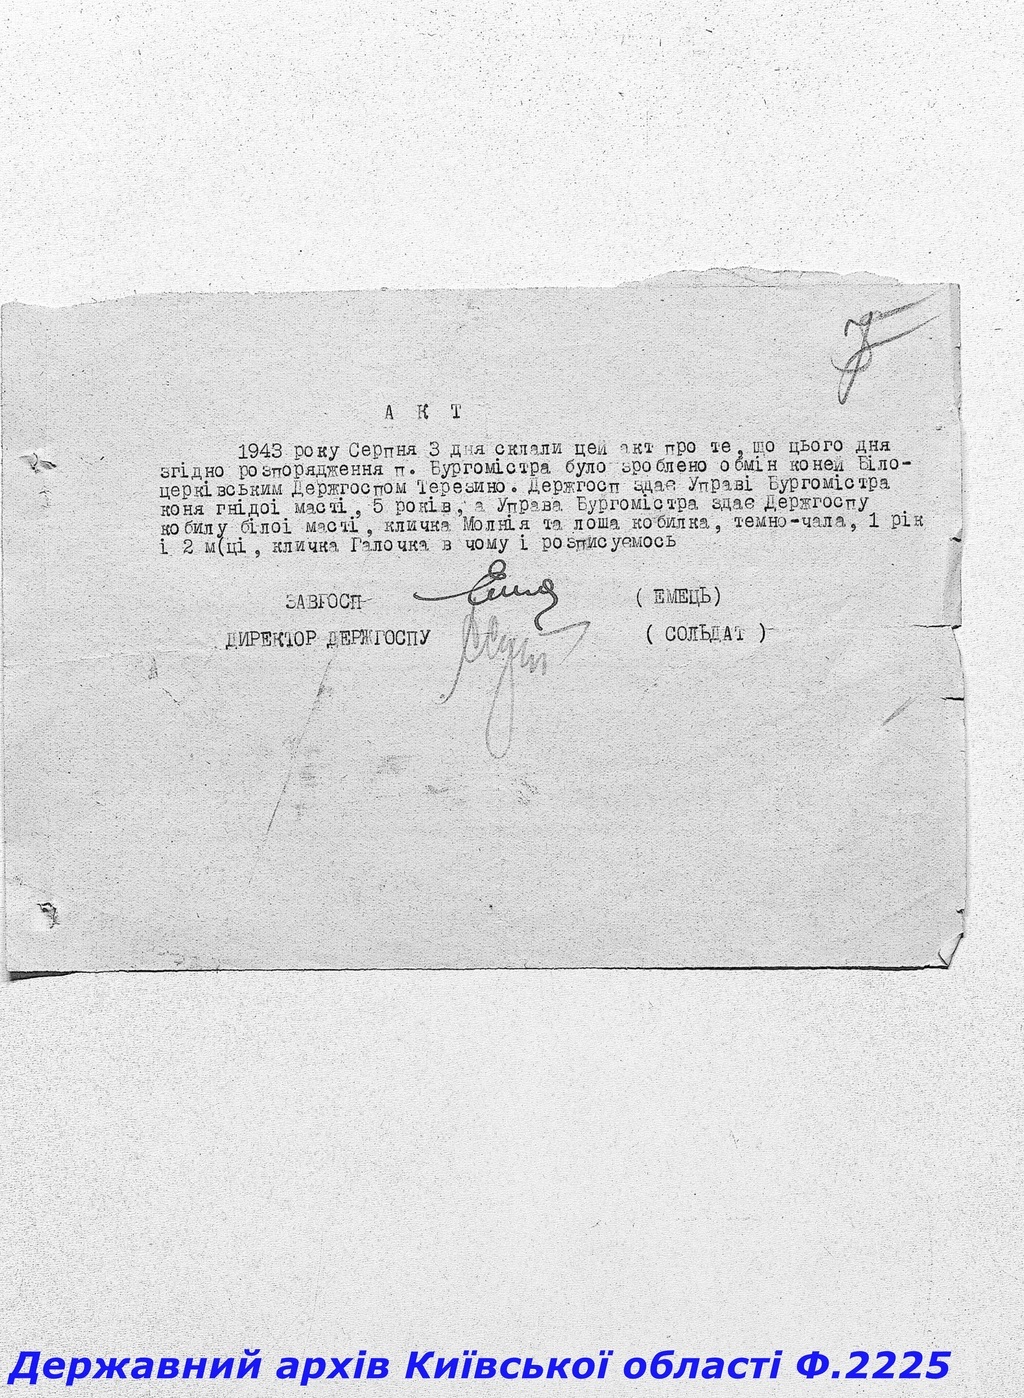 А К Т
1943 року Серпня 3 дня склали цей акт про те, що цього дня
згідно розпорядження п. Бургомістра було зроблено обмін коней Біло-
церківським Держгоспом Терезино. Держгосп здає Управі Бургомістра
коня гнідоі масті, 5 років, а Управа Бургомістра здає Держгоспу
кобилу білоі масті, кличка Молнія та лоша кобилка, темно-чала, 1 рік
і 2 м(ці, кличка Галочка в чому і розписуємось
ЗАВГОСП ( ЕМЕЦЬ)
ДИРЕКТОР ДЕРЖГОСПУ ( СОЛЬДАТ )
Державний архів Київської області Ф.2225